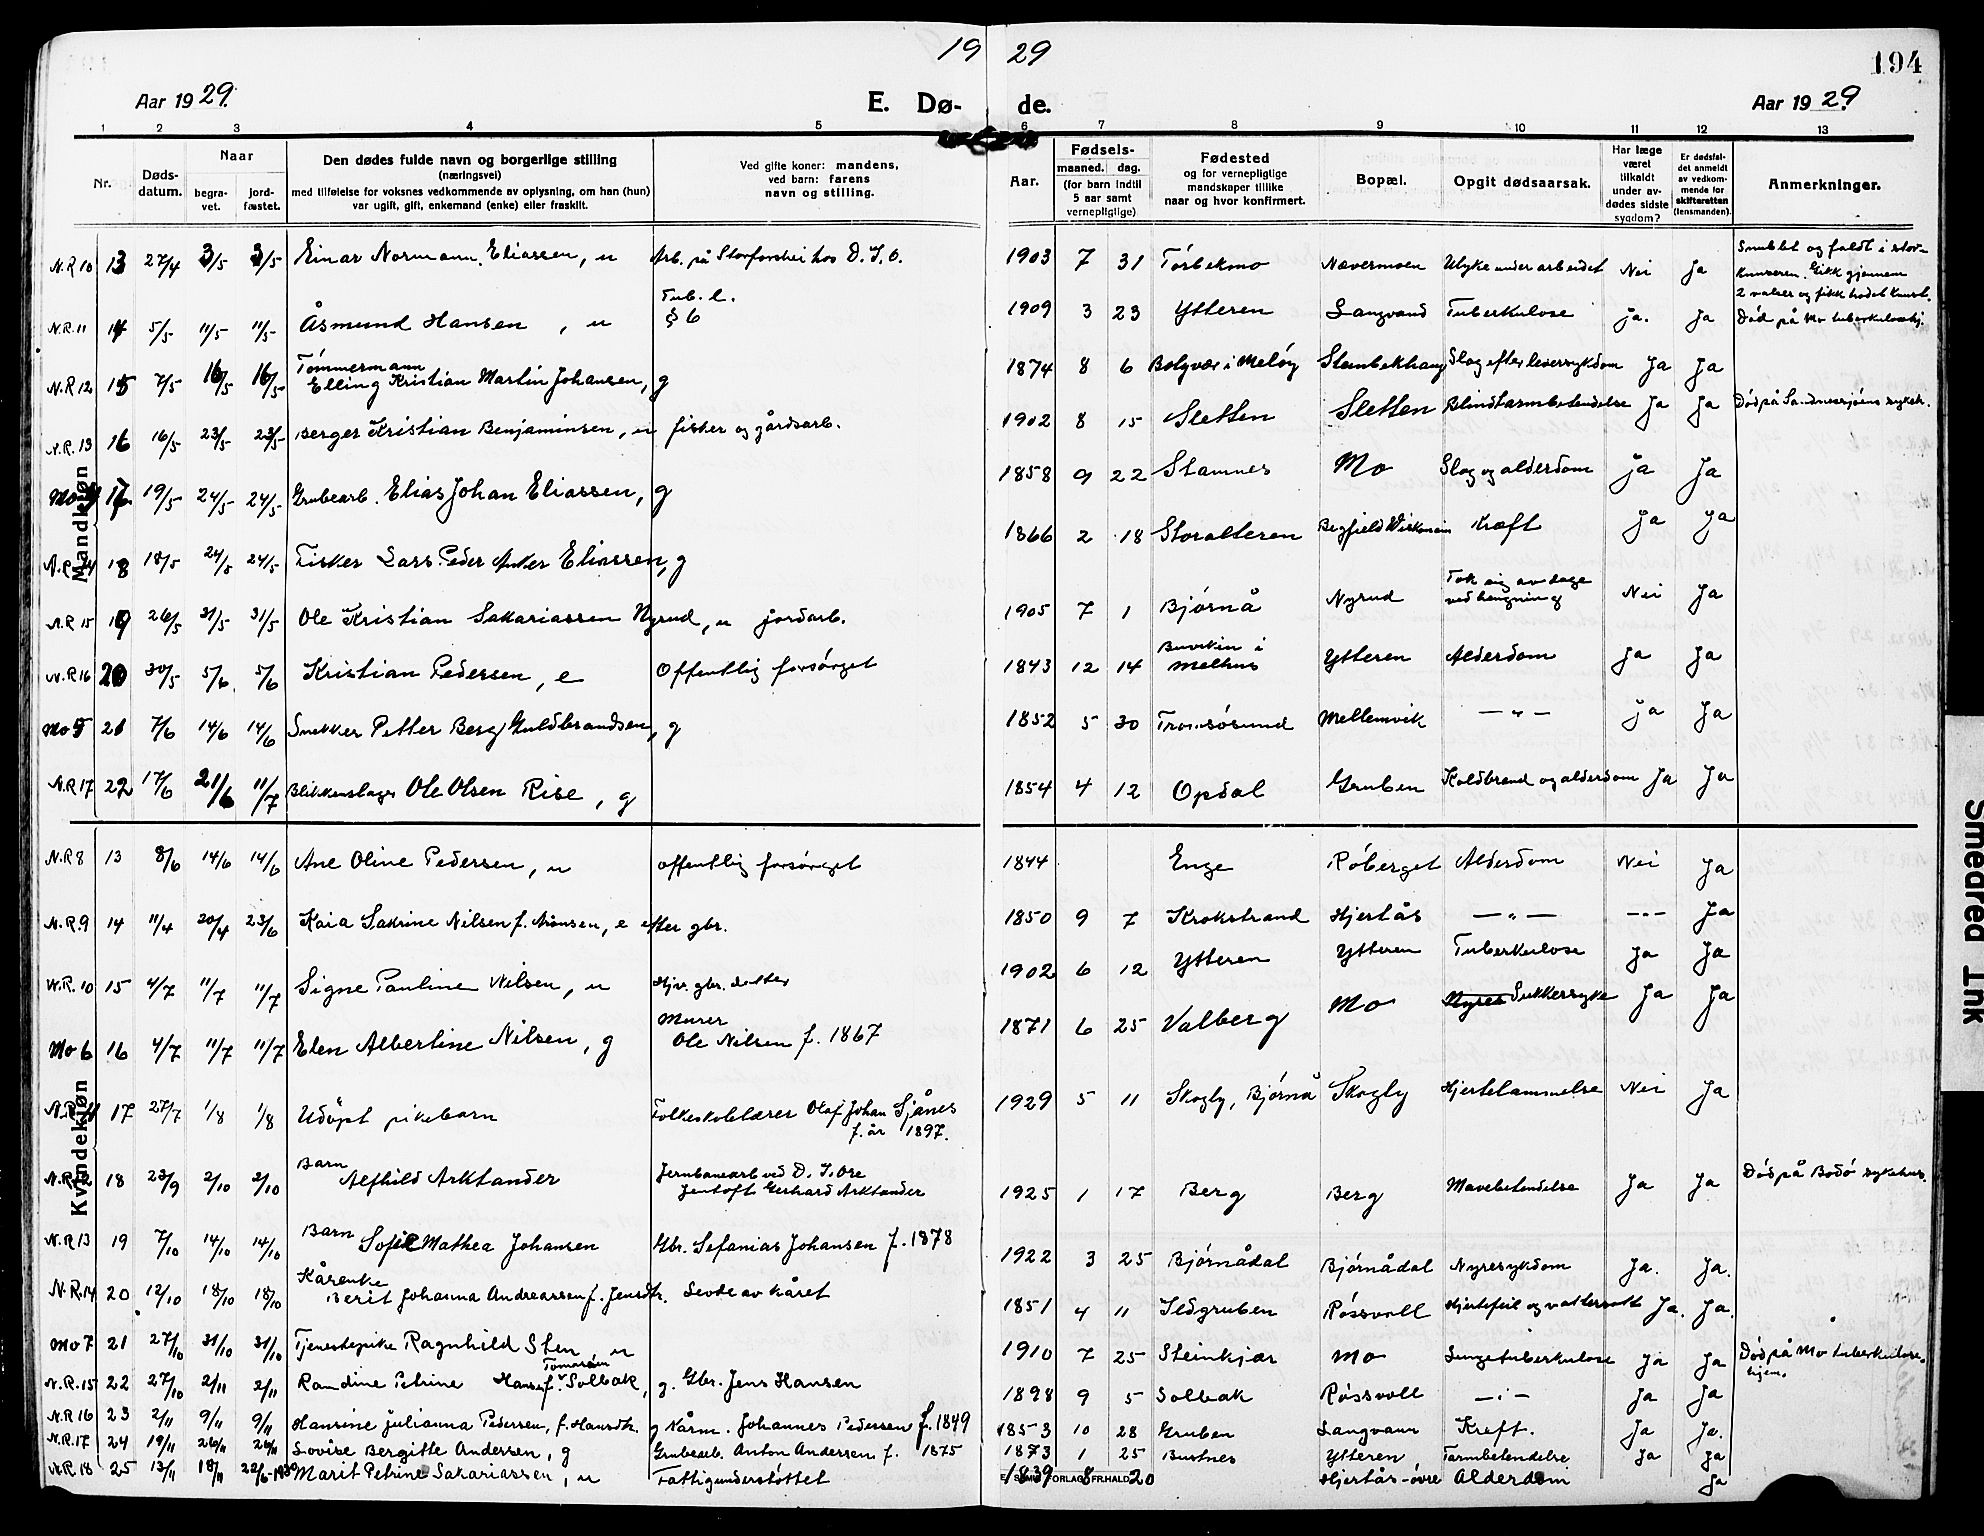 19 29
194
Aar 1929.
E. Dø- de.
Aar 1929
1 2 3 4 5 6 7 8 9 10 11 12 13
Nr. Døds-datum. Naar begra-vet. jord-fæstet. Den dødes fulde navn og borgerlige stilling (næringsvei) med tilføielse for voksnes vedkommende av oplysning, om han (hun) var ugift, gift, enkemand (enke) eller fraskilt. Ved gifte koner: mandens, ved barn: farens navn og stilling. Aar. Fødsels- maaned. dag. (for barn indtil 5 aar samt vernepligtige) Fødested og for vernepligtige mandskaper tillike naar og hvor konfirmert. Bopæl. Opgit dødsaarsak. Har læge været tilkaldt under av-dødes sidste sygdom? Er dødsfal-det anmeldt av vedkom-mende for skifteretten (lensmanden). Anmerkninger.
Mandkjøn
N.R 10 13 27/4 3/5 3/5 Einar Normann Eliassen, u Arb. på Storforshei hos D.I.O. 1903 7 31 Torbekmo Nævermoen Ulyke under arbeidet Nei Ja Snublet og faldt i stor-knuseren. Gikk gjennem 2 valser og fikk hodet knust.
N.R. 11 14 5/5 11/5 11/5 Åsmund Hansen, u Tub. l. § 6 1909 3 23 Ytteren Langvand Tuberkulose ja. Ja Død på Mo tuberkulosehj.
N.R 12 15 7/5 16/5 16/5 Tømmermann Elling Kristian Martin Johansen, g 1874 8 6 Bolgvær i Meløy Stenbekhaug Slag efter leversykdom Ja Ja
N.R. 13 16 16/5 23/5 23/5 Berger Kristian Benjaminsen, u fisker og gårdsarb. 1902 8 15 Sletten Sletten Blindtarmbetendelse Ja Ja Død på Sandnessjøens sykeh.
Mo 17 19/5 24/5 24/5 Grubearb. Elias Johan Eliassen, g 1858 9 22 Stamnes Mo Slag og alderdom ja Ja
N.R. 14 18 18/5 24/5 24/5 Fisker Lars Peder Anker Eliassen, g 1866 2 18 Storalteren Kræft Ja Ja
N.R 15 19 26/5 31/5 31/5 Ole Kristian Sakariassen Nyrud, u jordarb. 1905 7 1 Bjørnå Nyrud Tok sig av dage ved hengning Nei Ja
N.R 16 20 30/5 5/6 5/6 Kristian Pedersen, e Offentlig forsørget 1843 12 14 Buvikin i Melhus Ytteren Alderdom Ja Ja
Mo 5 21 7/6 14/6 14/6 Snekker Petter Berg Guldbrandsen, g 1852 5 30 Tromsøsund Mellemvik — " — ja Ja
N.R 17 22 17/6 21/6 11/7 Blikkenslager Ole Olsen Rise, g 1854 4 12 Opdal Gruben Koldbrand og alderdom Ja Ja
Kvindekjøn
N.R 8 13 8/6 14/6 14/6 Ane Oline Pedersen, u offentlig forsørget 1844 Enge Røberget Alderdom Nei Ja
N.R. 9 14 11/4 20/4 23/6 Kaia Sakrine Nilsen f. Arønsen, e efter gbr. 1850 9 7 Krokstrand Hjertås — " — — " — Ja
N.R. 10 15 4/7 11/7 11/7 Signe Pauline Nilsen, u Hjv. gbr. datter 1902 6 12 Ytteren Ytteren Tuberkulose Ja Ja
Mo 6 16 4/7 11/7 11/7 Elen Albertine Nilsen, g Murer Ole Nilsen f. 1867 1871 6 25 Valberg Mo Nyres Sukkersyke Ja Ja
N.R. 11 17 27/7 1/8 1/8 Udøpt pikebarn Folkeskolelærer Olaf Johan Sjånes f. år 1897. 1929 5 11 Skogly, Bjørnå Skogly Hjertelammelse Nei Ja
N.R. 12 18 23/9 2/10 2/10 Barn Alfhild Arktander Jernbanearb ved D. I. Ore Jentoft Gerhard Arktander 1925 1 17 Berg Berg Mavebetendelse Ja Ja Død på Bodø sykehus.
N.R 13 19 7/10 14/10 14/10 Barn Sofie Mathea Johansen Gbr. Sefanias Johansen f. 1878 1922 3 25 Bjørnådal Bjørnådal Nyresykdom Ja. Ja.
N.R. 14 20 12/10 18/10 18/10 Kårenke Berit Johanna Andreassen f. Jensdtr. Levde av kåret 1851 4 11 Ildgruben Røssvoll Hjertefeil og vattersott Ja. Ja.
Mo 7 21 27/10 31/10 31/10 Tjenestepike Ragnhild Sten u 1910 7 25 Steinkjær Mo Lungetuberkulose Ja Ja Død på Mo tuberkulose-hjem.
N.R. 15 22 27/10 2/11 2/11 Randine Petrine Hansen f. Solbak, g. Gbr. Jens Hansen 1898 9 5 Solbak Røssvoll — " — Ja Ja
N.R 16 23 2/11 9/11 9/11 Hansine Julianna Pedersen, f. Hansdtr. g Kårm. Johannes Pedersen f. 1849 1853 10 28 Gruben Langvann Kreft. Ja Ja.
N.R. 17 24 19/11 26/11 26/11 Lovise Bergitte Andersen, g Grubearb. Anton Andersen f. 1875 1873 1 25 Bustnes Ytteren Tarmbetendelse Ja Ja
N.R. 18 25 13/11 18/11 22/6-1930 Marit Petrine Sakariassen, u Fattigunderstøttet 1839 8 20 Hjertås-övre Alderdom Ja
Smedred Trk